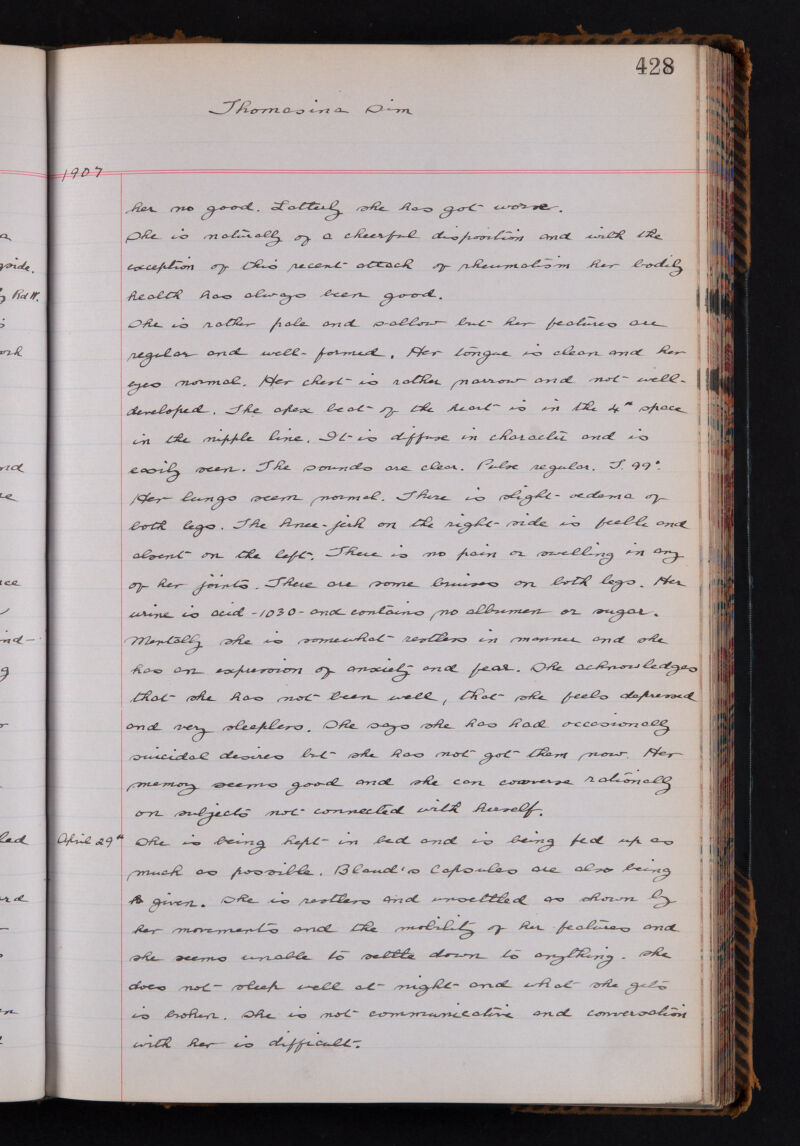 428
Thomasina Sim
1907
her no good. Latterly she has got worse.
She is naturally of a cheerful disposition and with the
exception of this recent attack of rheumatism her bodily
health has always been good.
She is rather pale and sallow but her features are
regular and well-formed. Her tongue is clean and her
eyes normal. Her chest is rather narrow and not well-
developed. The apex beat of the heart is in the 4th space
in the nipple line. It is diffuse in character and is
easily seen. The sounds are clear. Pulse regular. T. 99°.
Her lungs seem normal. There is slight oedema of
both legs. The knee-jerk on the right side is feeble and
absent on the left. There is no pain or swelling in any
of her joints. There are some bruises on both legs. Her
urine is acid -1030- and contains no albumen or sugar.
Mentally she is somewhat restless in manner and she
has an expression of anxiety and fear. She acknowledges
that she has not been well, that she feels depressed
and very sleepless. She says she has had occasionally
suicidal desires but she has not got them now. Her
memory seems good and she can converse rationally
on subjects not connected with herself.
April 29th She is being kept in bed and is being fed up as
much as possible. Blaud's Capsules are also being
given. She is restless and unsettled as shown by
her movements and the mobility of her features and
she seems unable to settle down to anything. She
does not sleep well at night and what she gets
is broken. She is not communicative and conversation
with her is difficult.